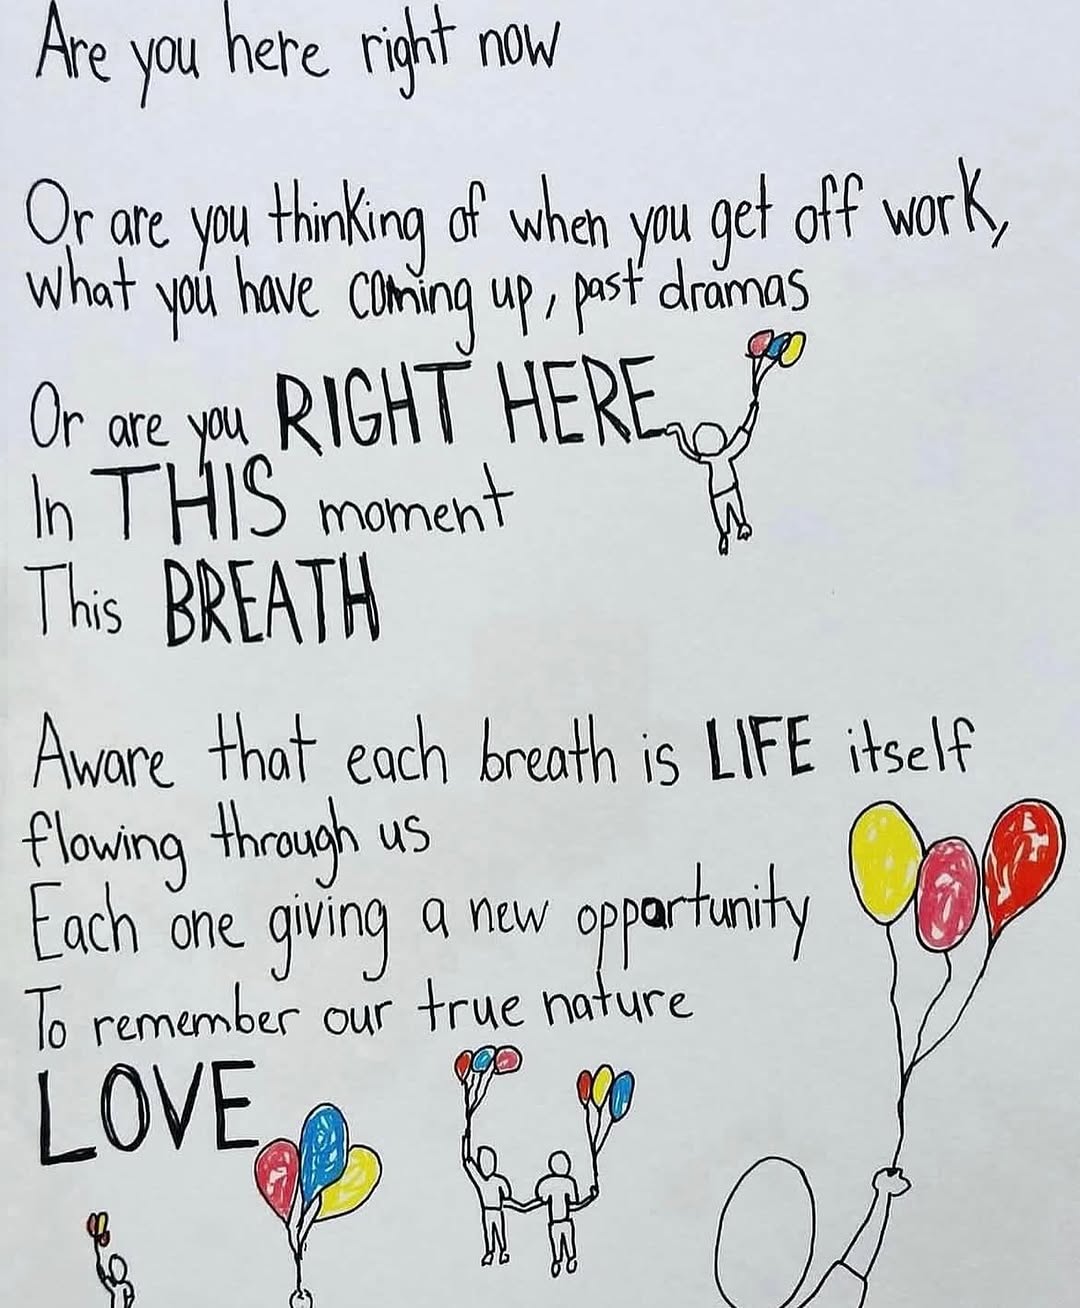 Are you here right now
Or are you thinking of when you get off work,
what you have coming up, past dramas
Or are you RIGHT HERE
In THIS moment
This BREATH
Aware that each breath is LIFE itself
flowing through us
Each one giving a new opportunity
To remember our true nature
LOVE